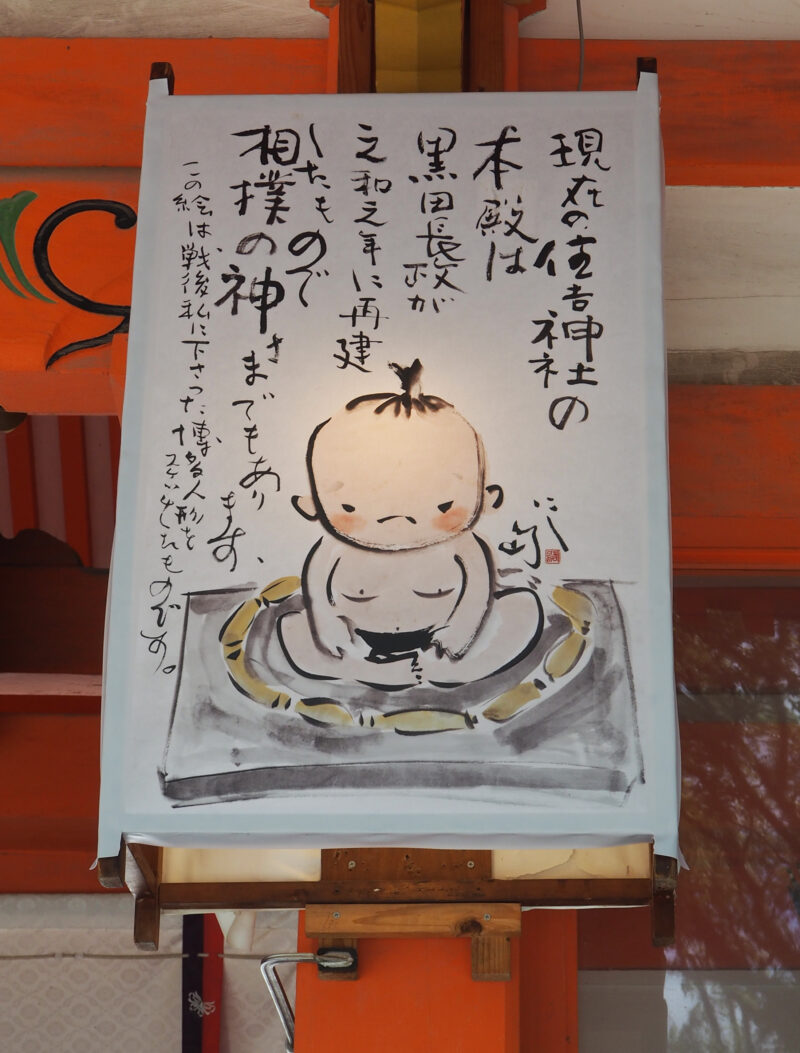 現在の住吉神社の
本殿は
黒田長政が
元和元年に再建
したもので
相撲の神さまでもあり
ます、
この絵は、戦後私に下さった博多人形を